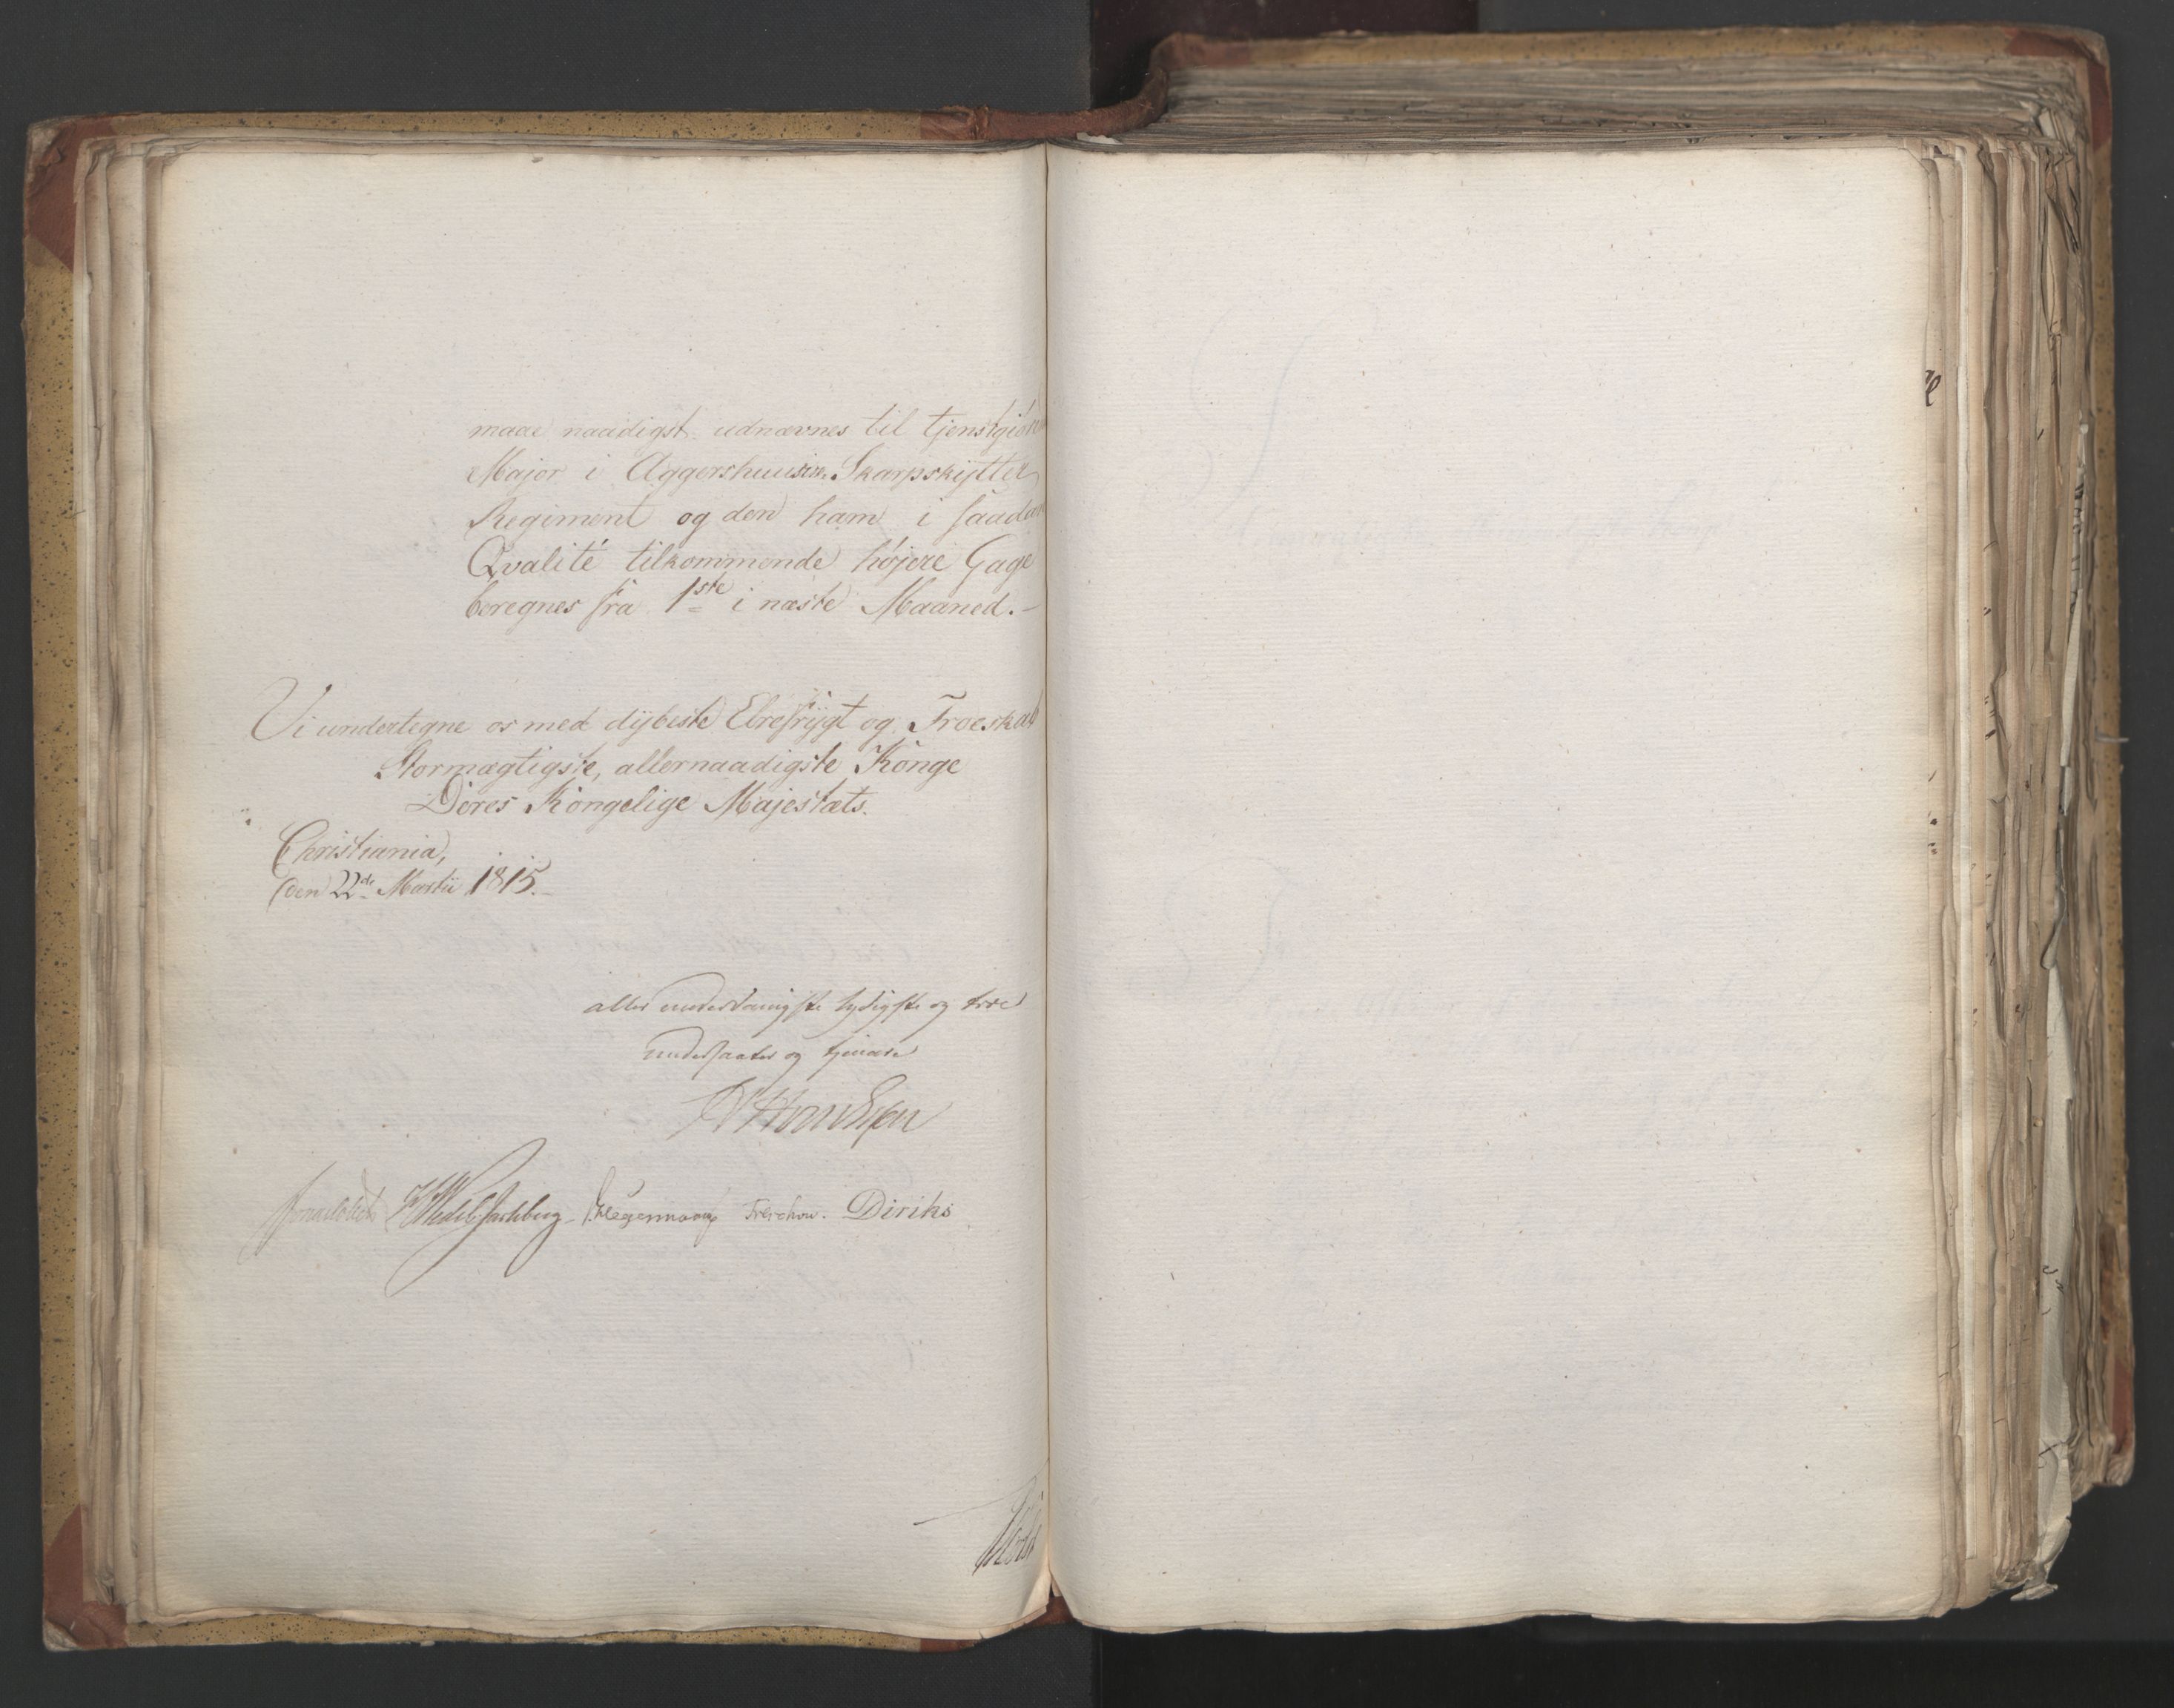 maae naadigst udnævnes til tjenstgiøren
Major i Aggershuusiske Skarpskytter
Regiment og den ham i saadan
Qvalité tilkommende højere Gage
beregnes fra 1ste i næste Maaned.-
Vi undertegne os med dybeste Ebrefrygt og Troeskab
Stormægtigste, allernaadigste Konge
Deres Kongelige Majestæts.
Christiania,
den 22de Martii 1815.-
aller underdanigste lydigste og troe
undersaater og tjenere
Sommerhjelm Wedel Jarlsberg Hegermann Treschow. Diriks